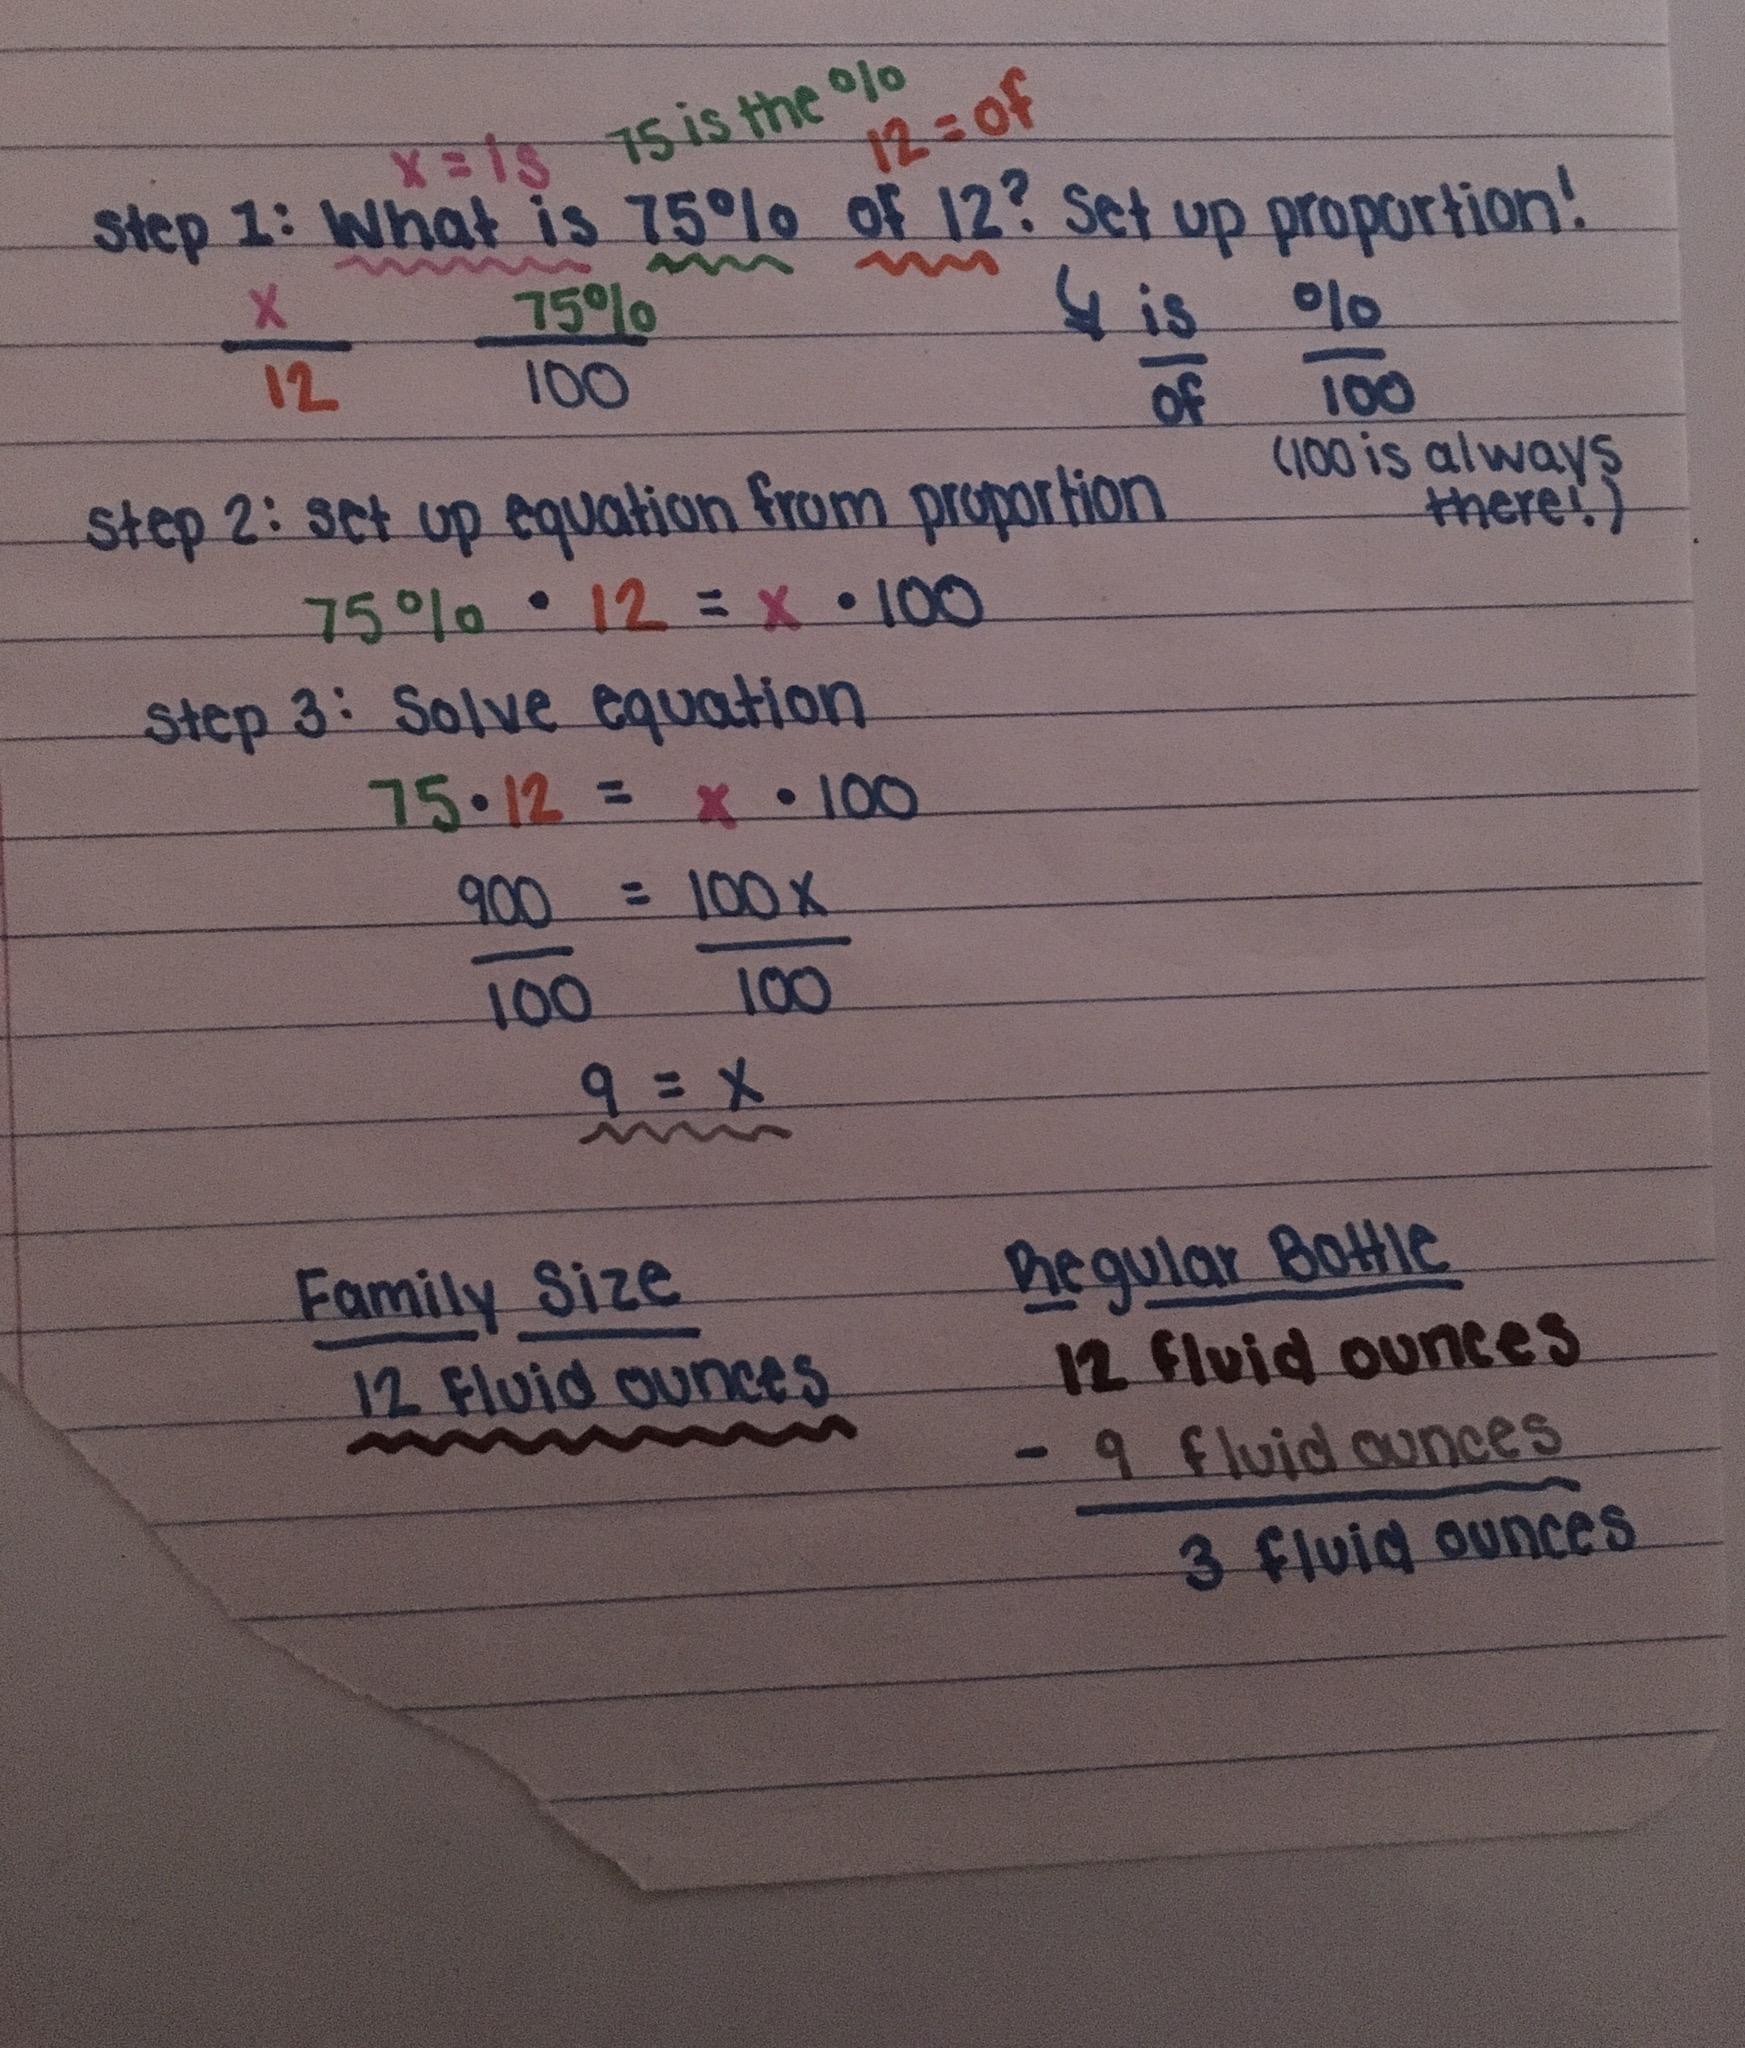 x = is 75 is the % 12 = of
Step 1: What is 75% of 12? Set up proportion!
x 75% is %
12 100 of 100
(100 is always
there!)
Step 2: set up equation from proportion
75% • 12 = x • 100
Step 3: Solve equation
75 • 12 = x • 100
900 = 100x
100 100
9 = x
Family Size Regular Bottle
12 fluid ounces 12 fluid ounces
- 9 fluid ounces
3 fluid ounces